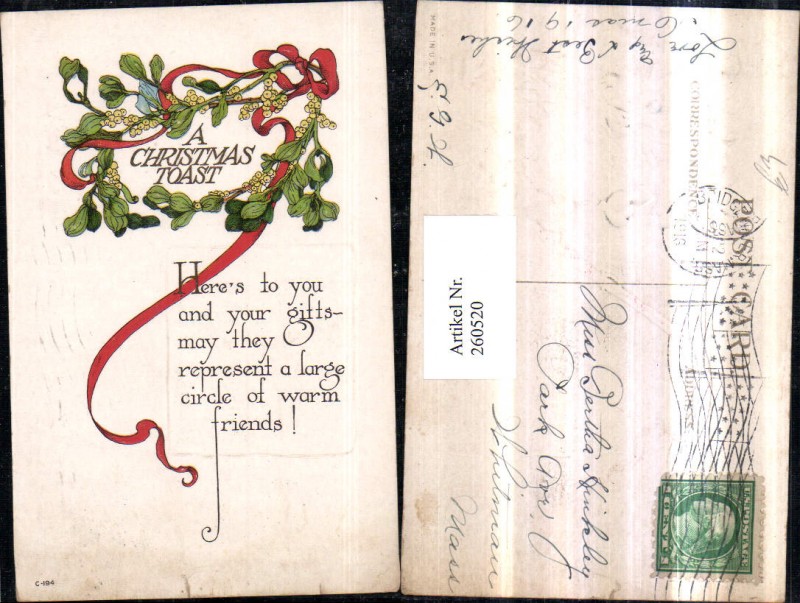 A
CHRISTMAS
TOAST
Here's to you
and your gifts—
may they
represent a large
circle of warm
friends!
C-194
MADE IN U.S.A.
Love
& Best Wishes
Xmas 1916
CORRESPONDENCE
POST CARD
ADDRESS
1916
Artikel Nr.
260520
Miss Bertha Hinkley
Park Ave
Whitman
Mass
U.S. POSTAGE